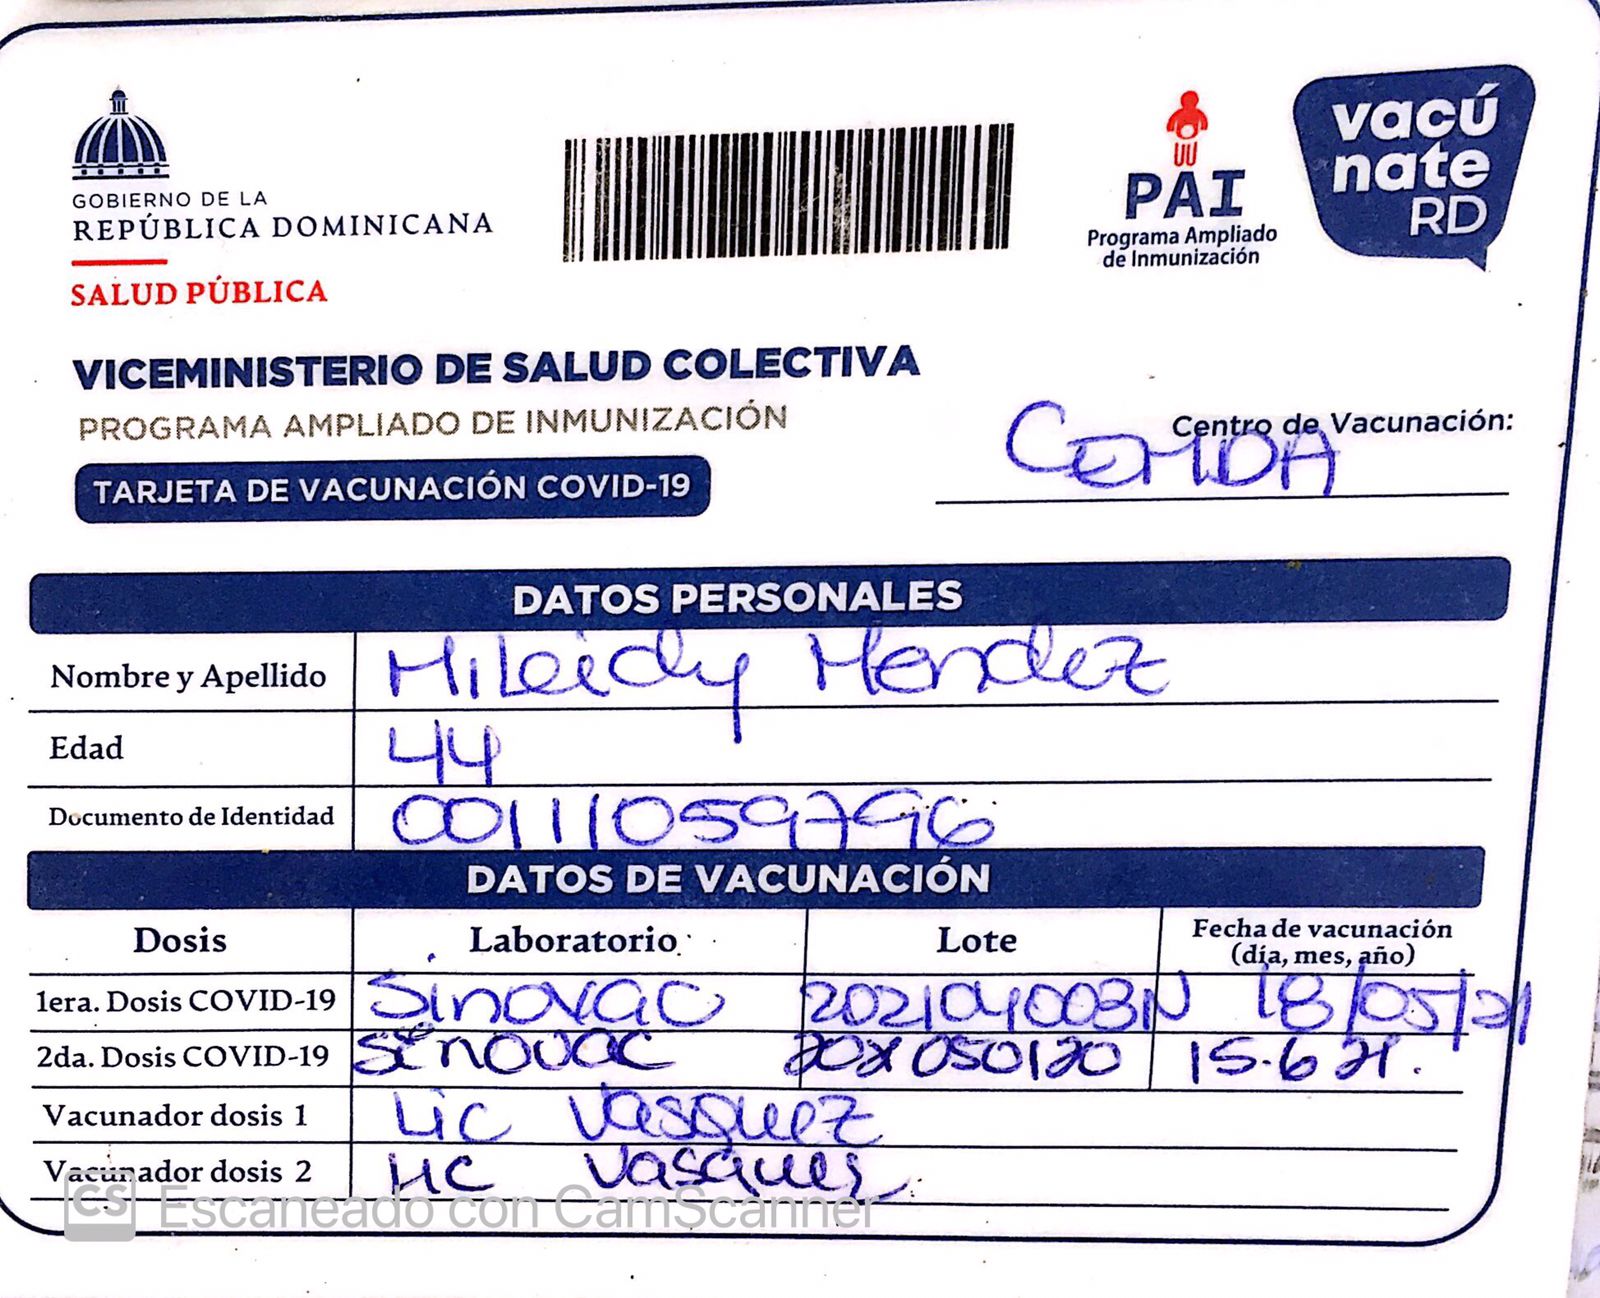 GOBIERNO DE LA
REPÚBLICA DOMINICANA
SALUD PÚBLICA
PAI
Programa Ampliado
de Inmunización
vacú
nate
RD
VICEMINISTERIO DE SALUD COLECTIVA
PROGRAMA AMPLIADO DE INMUNIZACIÓN
TARJETA DE VACUNACIÓN COVID-19
Centro de Vacunación:
CEMDA
DATOS PERSONALES
Nombre y Apellido Mileidy Mendez
Edad 44
Documento de Identidad 00111059796
DATOS DE VACUNACIÓN
Dosis Laboratorio Lote Fecha de vacunación
(día, mes, año)
1era. Dosis COVID-19 Sinovac 202104003N 18/05/21
2da. Dosis COVID-19 Sinovac 15.6 21.
Vacunador dosis 1 Lic Vasquez
Vacunador dosis 2 Lic Vasques
CS Escaneado con CamScanner